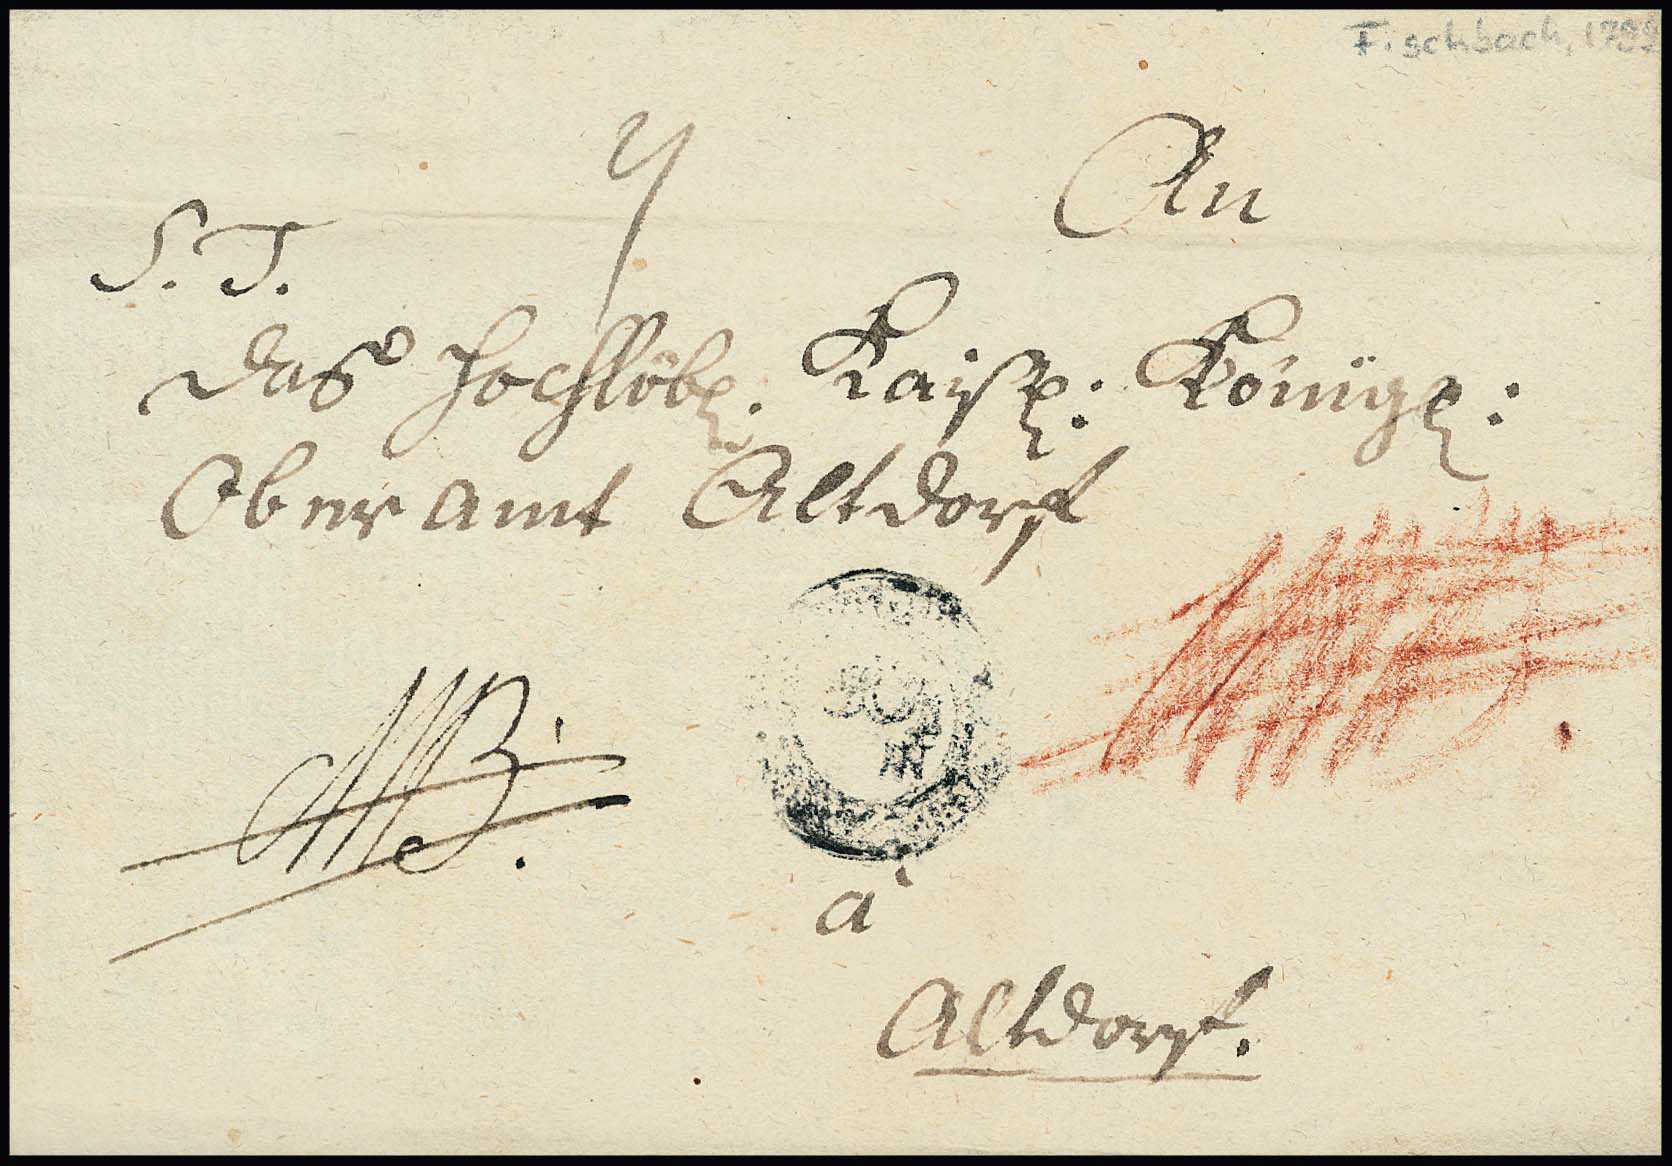 Fischbach, 1799
An
S. T.
das hochlöbl. Kaysl: Königl:
Oberamt Altdorf
à
Altdorf.